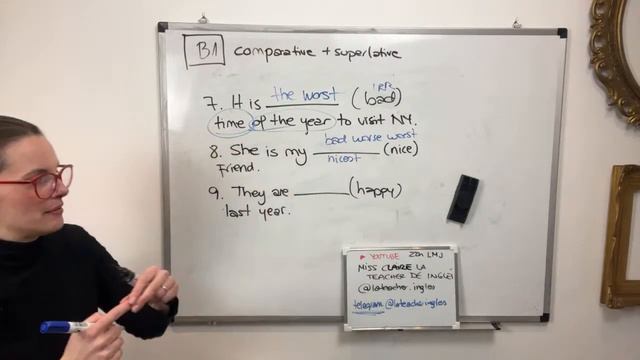 B1 comparative + superlative
IRR
7. It is the worst (bad)
time of the year to visit NY.
bad worse worst
8. She is my nicest (nice)
Friend.
9. They are ______ (happy)
last year.
▶ YOUTUBE 22h LMJ
MISS CLAIRE LA
TEACHER DE INGLÉS
@lateacher.ingles
telegram @lateacheringles